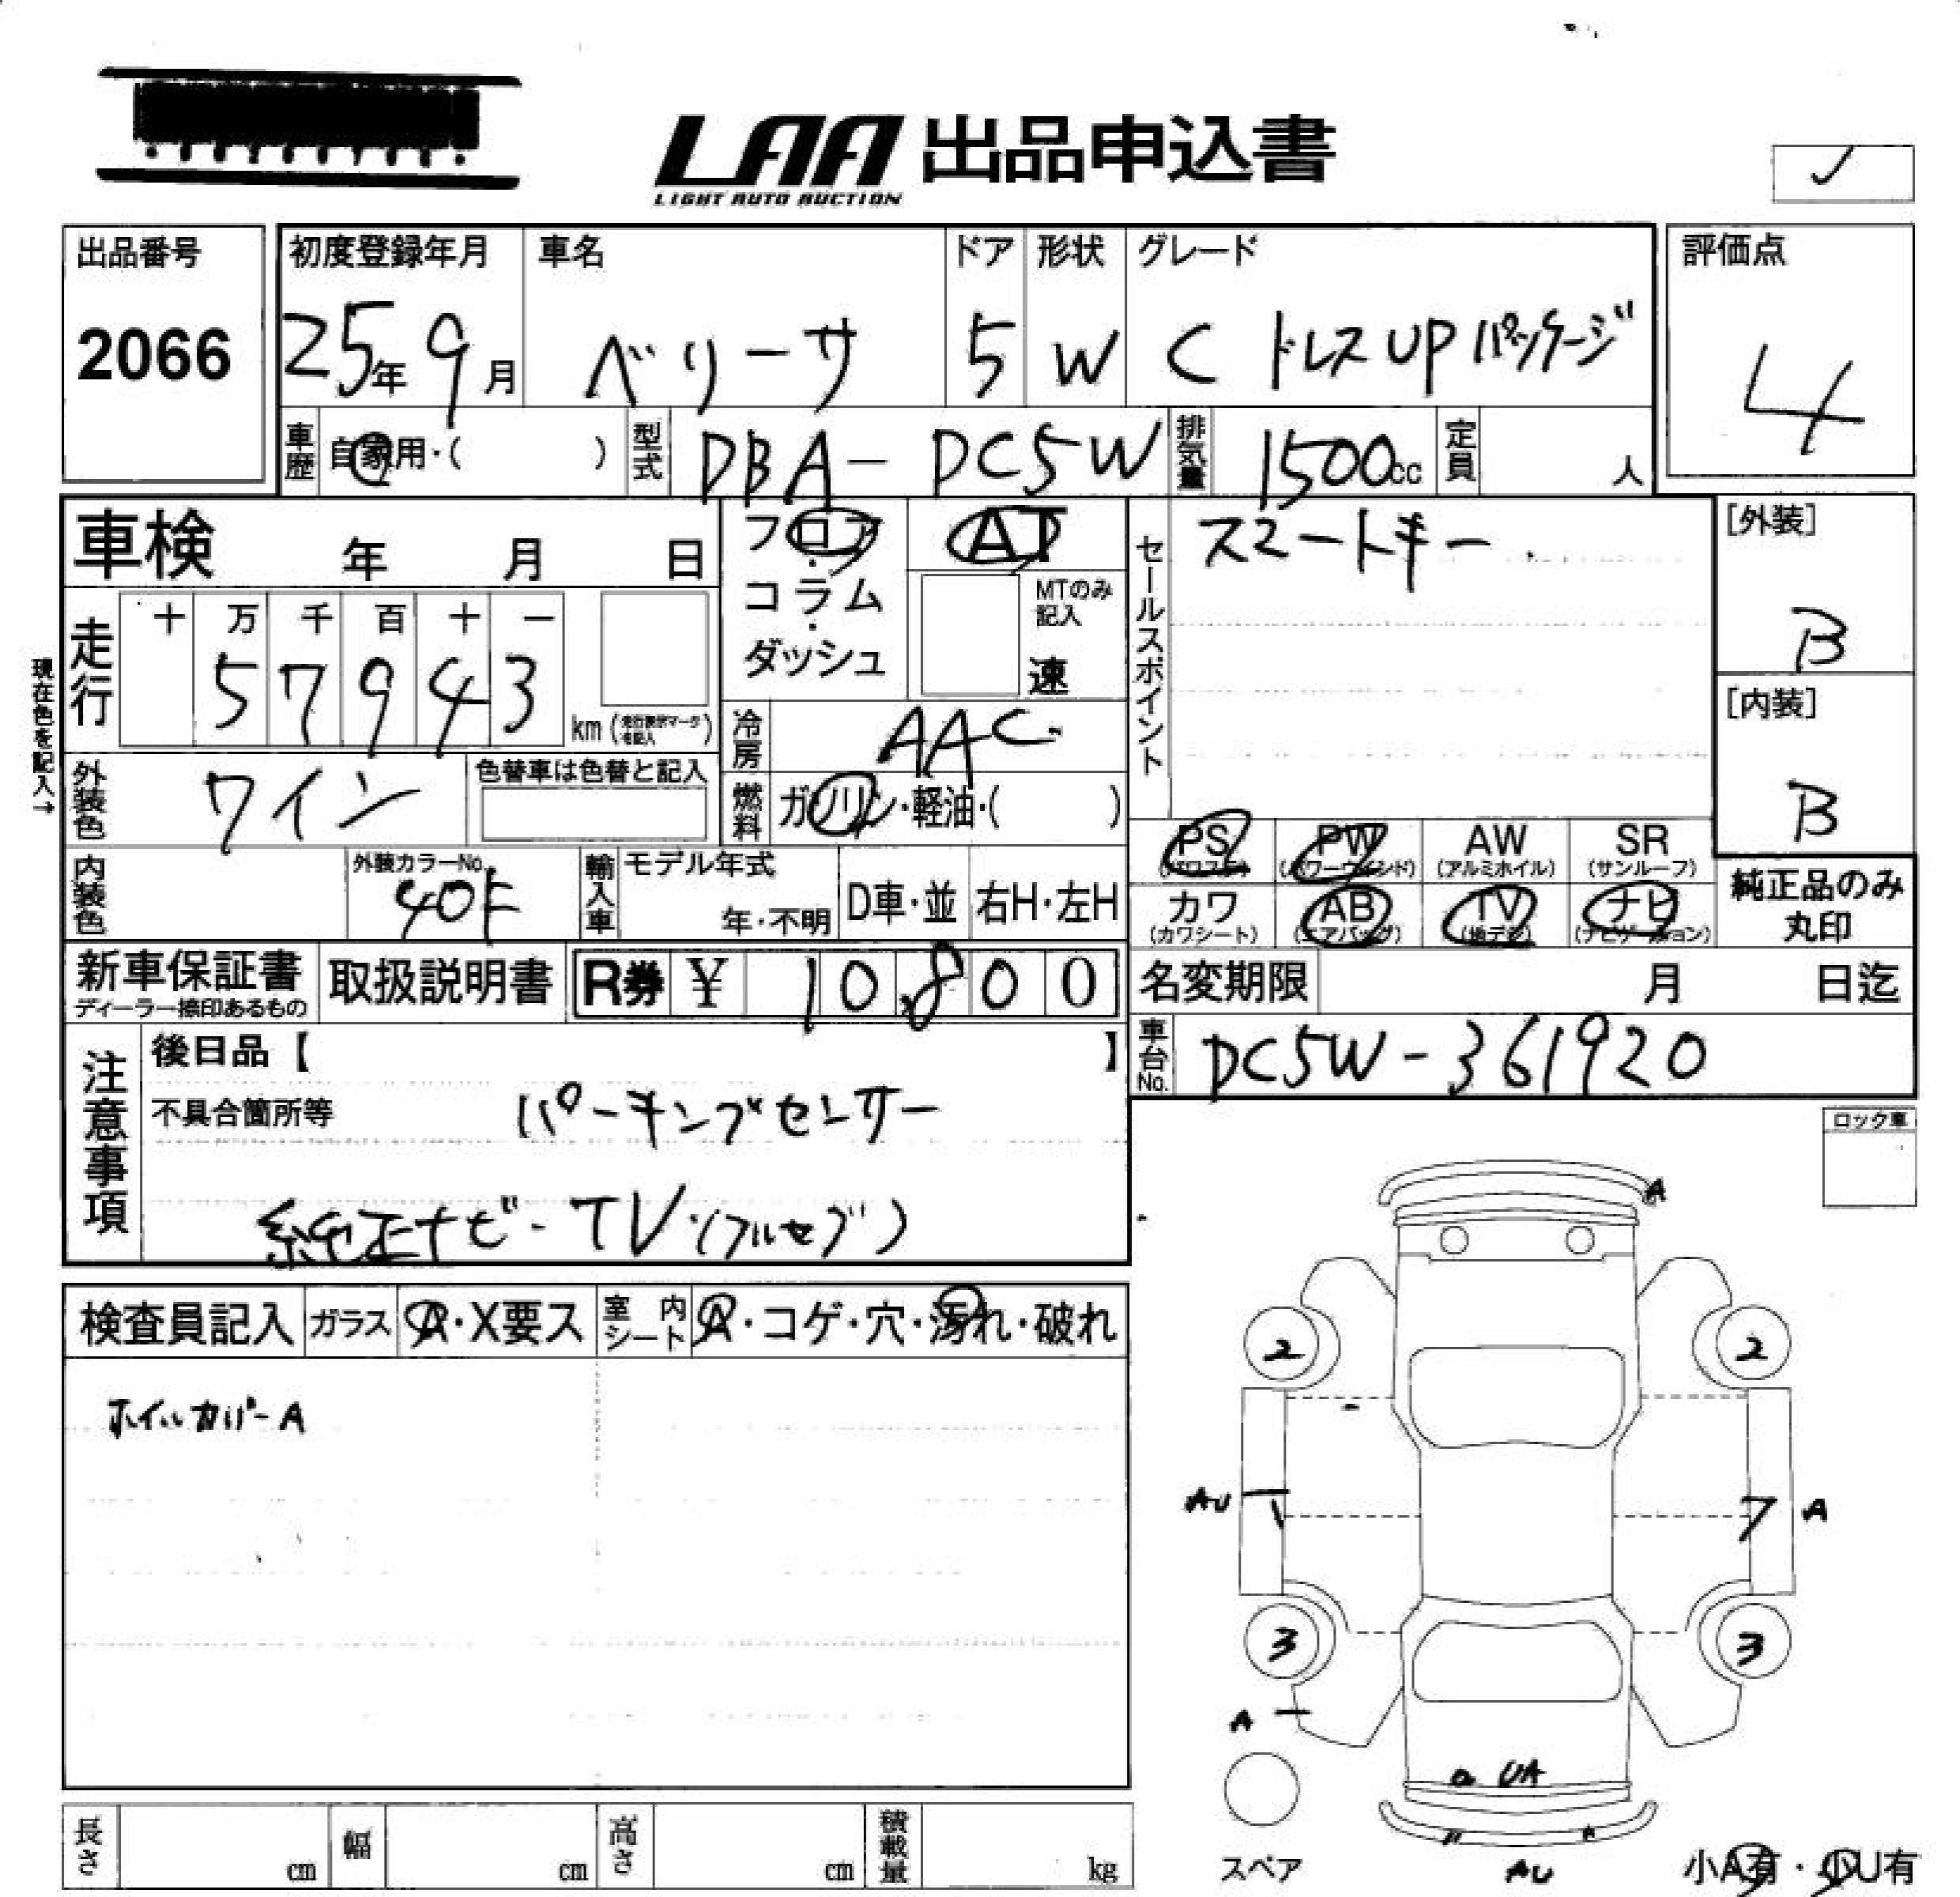 LAA 出品申込書
LIGHT AUTO AUCTION
出品番号 初度登録年月 車名 ドア 形状 グレード 評価点
2066 25年 9月 ベリーサ 5 W C ドレスUPパッケージ 4
車歴 自家用・( ) 型式 DBA-DC5W 排気量 1500cc 定員 人
車検 年 月 日
フロア・コラム・ダッシュ
AT
MTのみ記入
速
セールスポイント スマートキー
[外装]
B
[内装]
B
現在色を記入→
走行 十 万 千 百 十 一
57943 km (走行表示マークを記入)
冷房 AAC
外装色 ワイン 色替車は色替と記入
燃料 ガソリン・軽油・( )
PS (パワステ) PW (パワーウインド) AW (アルミホイル) SR (サンルーフ)
カワ (カワシート) AB (エアバッグ) TV (地デジ) ナビ (ナビゲーション)
純正品のみ
丸印
内装色 外装カラーNo. 40F 輸入車 モデル年式 年・不明 D車・並 右H・左H
新車保証書 ディーラー捺印あるもの 取扱説明書 R券 ¥ 10,800
名変期限 月 日迄
車台No. DC5W-361920
注意事項
後日品【 】
不具合箇所等 パーキングセンサー
純正ナビ・TV(フルセグ)
ロック車
検査員記入 ガラス A・X要ス 室内シート A・コゲ・穴・汚れ・破れ
ホイルカバーA
A
2 2
AU A
3 3
A
UA
A
AU
スペア
小A有・小U有
長さ cm 幅 cm 高さ cm 積載量 kg